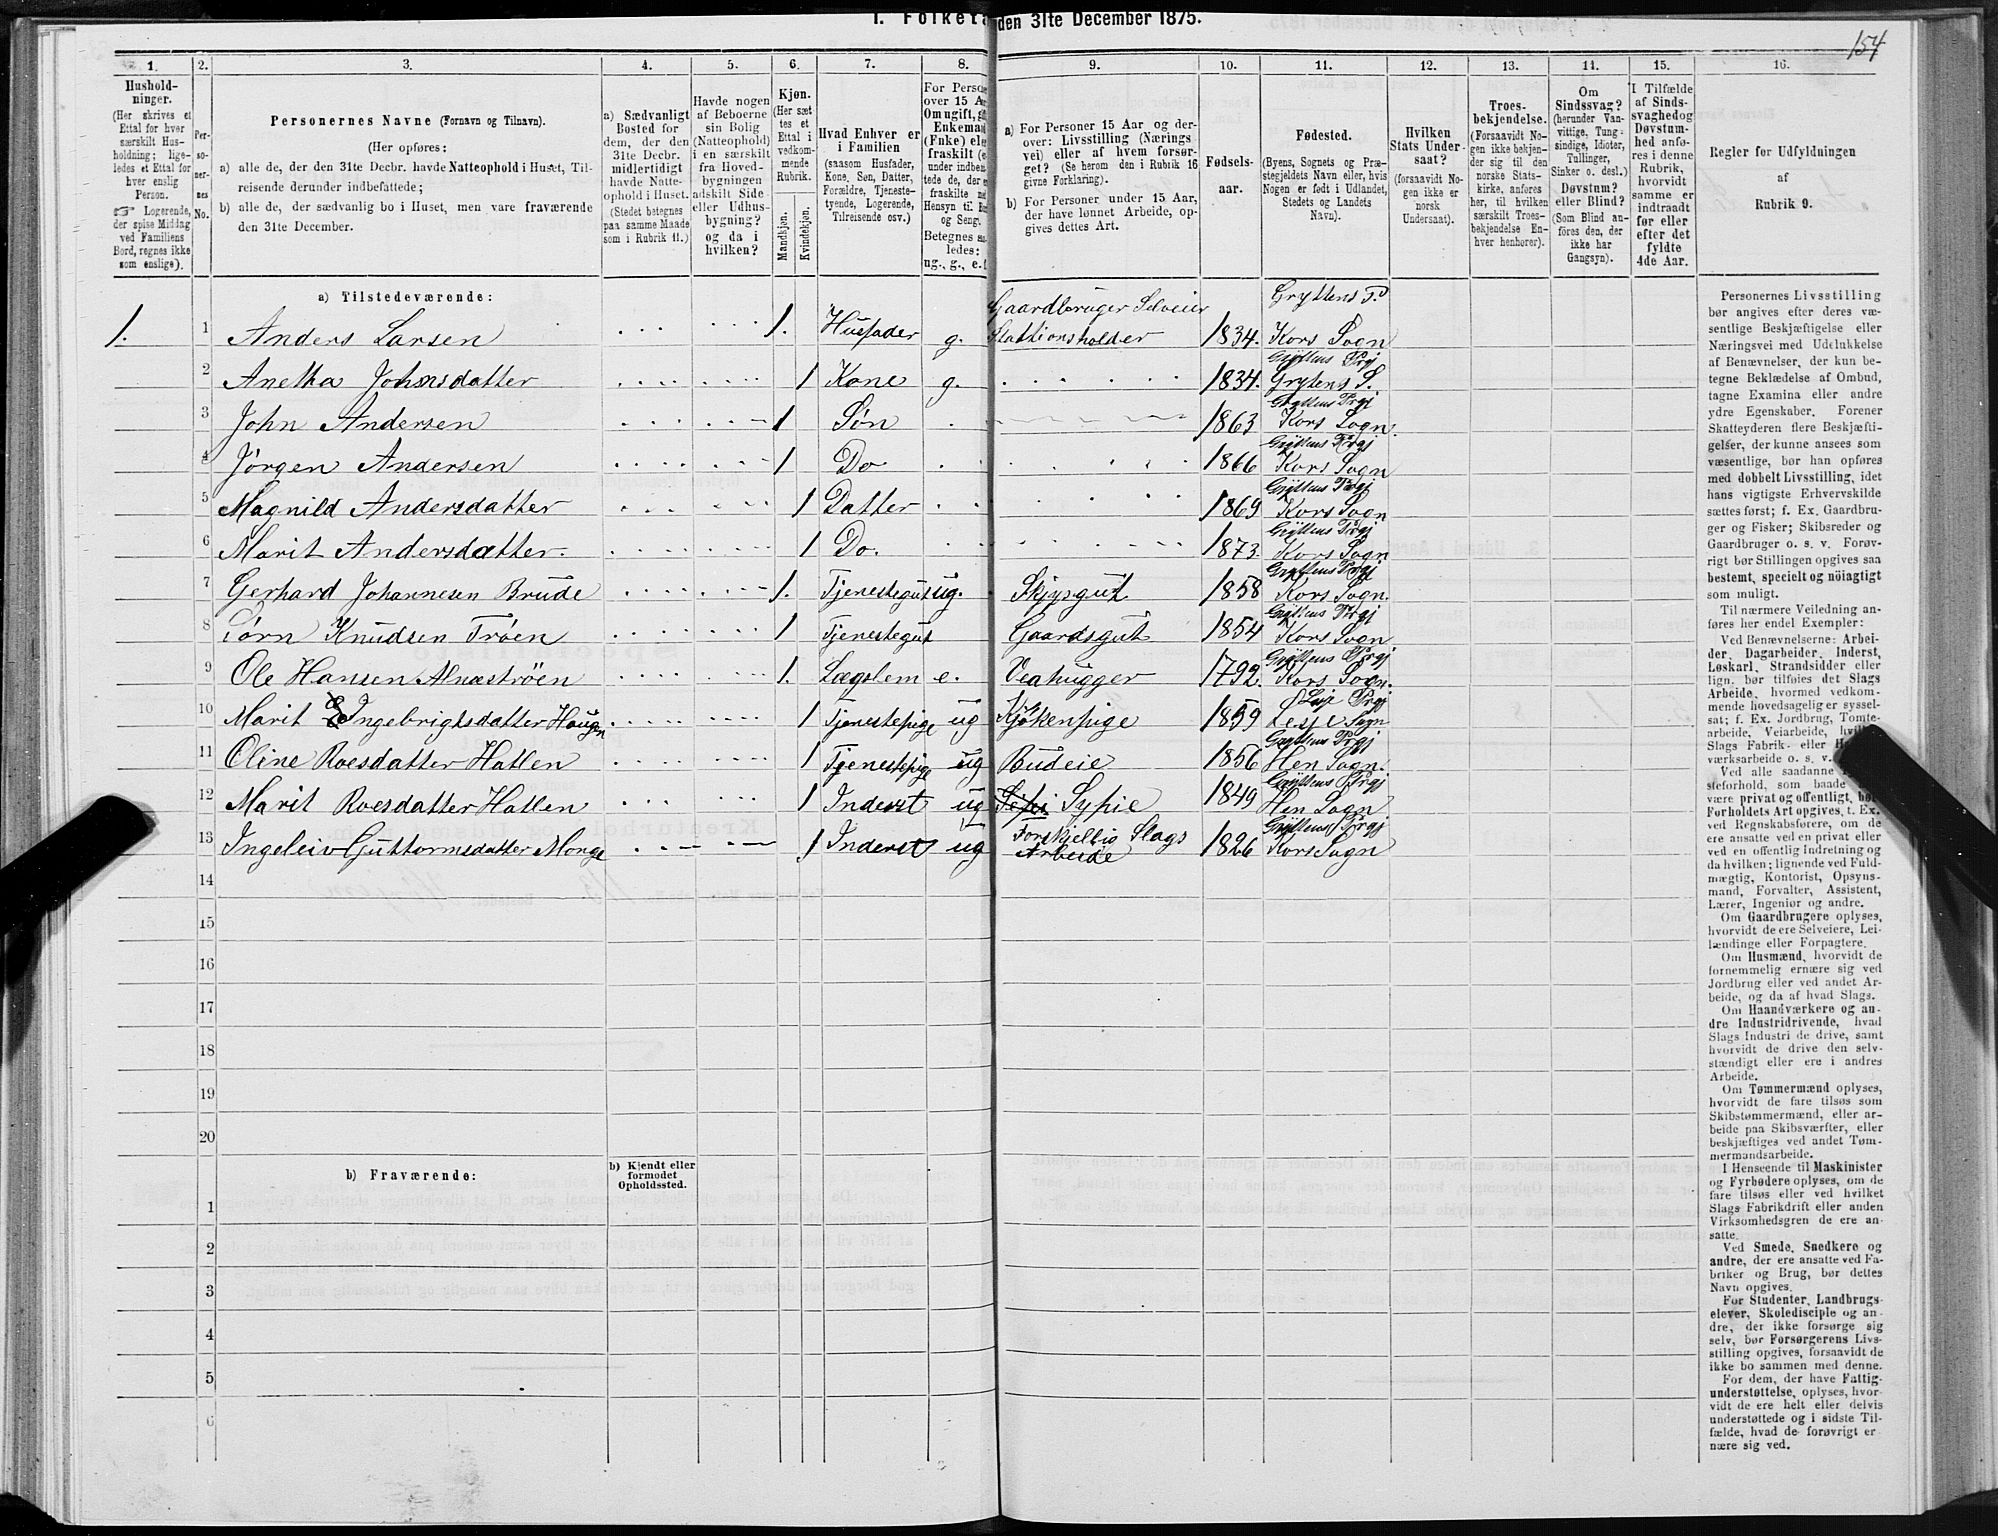 I. Folketæ
den 31te December 1875.
154
1.
2.
3.
4.
5.
6.
7.
8.
9.
10.
11.
12.
13.
14.
15.
16.
Hushold-
ninger.
(Her skrives et
Ettal for hver
særskilt Hus-
holdning; lige-
ledes et Ettal for
hver enslig
Person.
☞ Logerende,
der spise Middag
ved Familiens
Bord, regnes ikke
som enslige).
Per-
so-
ner-
nes
No.
Personernes Navne (Fornavn og Tilnavn).
(Her opføres:
a) alle de, der den 31te Decbr. havde Natteophold i Huset, Til-
reisende derunder indbefattede;
b) alle de, der sædvanlig bo i Huset, men vare fraværende
den 31te December.
a) Sædvanligt
Bosted for
dem, der den
31te Decbr.
midlertidigt
havde Natte-
ophold i Huset.
(Stedet betegnes
paa samme Maade
som i Rubrik 11.)
Havde nogen
af Beboerne
sin Bolig
(Natteophold)
i en særskilt
fra Hoved-
bygningen
adskilt Side-
eller Udhus-
bygning?
og da i
hvilken?
Kjøn.
(Her sæt-
tes et
Ettal i
vedkom-
mende
Rubrik.
Mandkjøn.
Kvindekjøn.
Hvad Enhver er
i Familien
(saasom Husfader,
Kone, Søn, Datter,
Forældre, Tjeneste-
tyende, Logerende,
Tilreisende osv.)
For Perso
over 15 Aa
Om ugift, g
Enkema
(Fnke) ele
fraskilt (
under indbe
tede de, der
fraskilte
Hensyn til B
og Seng.
Betegnes s
ledes:
ug., g., e. f
a) For Personer 15 Aar og der-
over: Livsstilling (Nærings
vei) eller af hvem forsør-
get? (Se herom den i Rubrik 16
givne Forklaring).
b) For Personer under 15 Aar,
der have lønnet Arbeide, op-
gives dettes Art.
Fødsels-
aar.
Fødested.
(Byens, Sognets og Præ-
stegjeldets Navn eller, hvis
Nogen er født i Udlandet,
Stedets og Landets
Navn).
Hvilken
Stats Under-
saat?
(forsaavidt No-
gen ikke er
norsk
Undersaat).
Troes-
bekjendelse.
(Forsaavidt No-
gen ikke bekjen-
der sig til den
norske Stats-
kirke, anføres
her, til hvilken
særskilt Troes-
bekjendelse En-
hver henhører).
Om
Sindssvag?
(herunder Van-
vittige, Tung-
sindige, Idioter,
Tullinger,
Sinker o. desl.)
Døvstum?
eller Blind?
(Som Blind an-
føres den, der
ikke har
Gangsyn).
I Tilfælde
af Sinds-
svaghed og
Døvstum-
hed anfø-
res i denne
Rubrik,
hvorvidt
samme er
indtraadt
før eller
efter det
fyldte
4de Aar.
Regler for Udfyldningen
af
Rubrik 9.
a) Tilstedeværende:
1. 1 Anders Larsen 1. Husfader g. Gaardbruger Selveier Stattionsholder 1834. Gryttens P. Kors Sogn
2 Anetha Johnsdatter 1 Kone g. 1834. Gryttens Prgj Grytens S.
3 John Andersen 1 Søn 1863 Gryttens Prgj Kors Sogn.
4 Jørgen Andersen 1 Do 1866 Gryttens Prgj Kors Sogn
5 Magnild Andersdatter 1 Datter 1869 Gryttens Prgj Kors Sogn
6 Marit Andersdatter. 1 Do. 1873. Gryttens Prgj Kors Sogn
7 Gerhard Johannesen Brude 1. Tjenestegut ug. Skjysgut 1858 Gryttens Prgj Kors Sogn.
8 Jørn Knudsen Trøen 1 Tjenestegut Gaardsgut 1854 Gryttens Prgj Kors Sogn
9 Ole Hansen Alnæstrøen 1. Lægslem e. Vedhugger 1792. Gryttens Prgj Kors Sogn.
10 Marit Ingebrigtsdatter Haugen 1 Tjenestepige ug Kjøkenpige 1859 Lesje Prgj Lesje Sogn
11 Oline Roesdatter Hatlen 1 Tjenestepige ug Budeie 1856 Gryttens Prgj Hen Sogn.
12 Marit Roesdatter Hatlen 1 Inderst ug Sypie 1849 Gryttens Prgj Hen Sogn
13 Ingeleiv Guttormsdatter Monge 1 Inderst ug Forskjellig Slags Arbeide 1826 Gryttens Prgj Kors Sogn
14
15
16
17
18
19
20
b) Fraværende:
b) Kjendt eller
formodet
Opholdssted.
1
2
3
4
5
6
Personernes Livsstilling
bør angives efter deres væ-
sentlige Beskjæftigelse eller
Næringsvei med Udelukkelse
af Benævnelser, der kun be-
tegne Beklædelse af Ombud,
tagne Examina eller andre
ydre Egenskaber. Forener
Skatteyderen flere Beskjæfti-
gelser, der kunne ansees som
væsentlige, bør han opføres
med dobbelt Livsstilling, idet
hans vigtigste Erhvervskilde
sættes først; f. Ex. Gaardbru-
ger og Fisker; Skibsreder og
Gaardbruger o. s. v. Forøv-
rigt bør Stillingen opgives saa
bestemt, specielt og nöiagtigt
som muligt.
Til nærmere Veiledning an-
føres her endel Exempler:
Ved Benævnelserne: Arbei-
der, Dagarbeider, Inderst,
Løskarl, Strandsidder eller
lign. bør tilføies det Slags
Arbeide, hvormed vedkom-
mende hovedsagelig er syssel-
sat; f. Ex. Jordbrug, Tomte-
arbeide, Veiarbeide, hvil
Slags Fabrik- eller H
værksarbeide o. s. v.
Ved alle saadanne
steforhold, som baade
være privat og offentligt, bør
Forholdets Art opgives, t. Ex.
ved Regnskabsførere, om de
ere ansatte ved en privat eller
ved en offentlig Indretning og
da hvilken; lignende ved Fuld-
mægtig, Kontorist, Opsyns-
mand, Forvalter, Assistent,
Lærer, Ingeniør og andre.
Om Gaardbrugere oplyses,
hvorvidt de ere Selveiere, Lei-
lændinge eller Forpagtere.
Om Husmænd, hvorvidt de
fornemmelig ernære sig ved
Jordbrug eller ved andet Ar-
beide, og da af hvad Slags.
Om Haandværkere og an-
dre Industridrivende, hvad
Slags Industri de drive, samt
hvorvidt de drive den selv-
stændigt eller ere i andres
Arbeide.
Om Tømmermænd oplyses,
hvorvidt de fare tilsøs som
Skibstømmermænd, eller ar-
beide paa Skibsværfter, eller
beskjæftiges ved andet Tøm-
mermandsarbeide.
I Henseende til Maskinister
og Fyrbødere oplyses, om de
fare tilsøs eller ved hvilket
Slags Fabrikdrift eller anden
Virksomhedsgren de ere an-
satte.
Ved Smede, Snedkere og
andre, der ere ansatte ved Fa-
briker og Brug, bør dettes
Navn opgives.
For Studenter, Landbrugs-
elever, Skoledisciple og an-
dre, der ikke forsørge sig
selv, bør Forsørgerens Livs-
stilling opgives, forsaavidt de
ikke bo sammen med denne.
For dem, der have Fattig-
understøttelse, oplyses, hvor-
vidt de ere helt eller delvis
understøttede og i sidste Til-
fælde, hvad de forøvrigt er
nære sig ved.